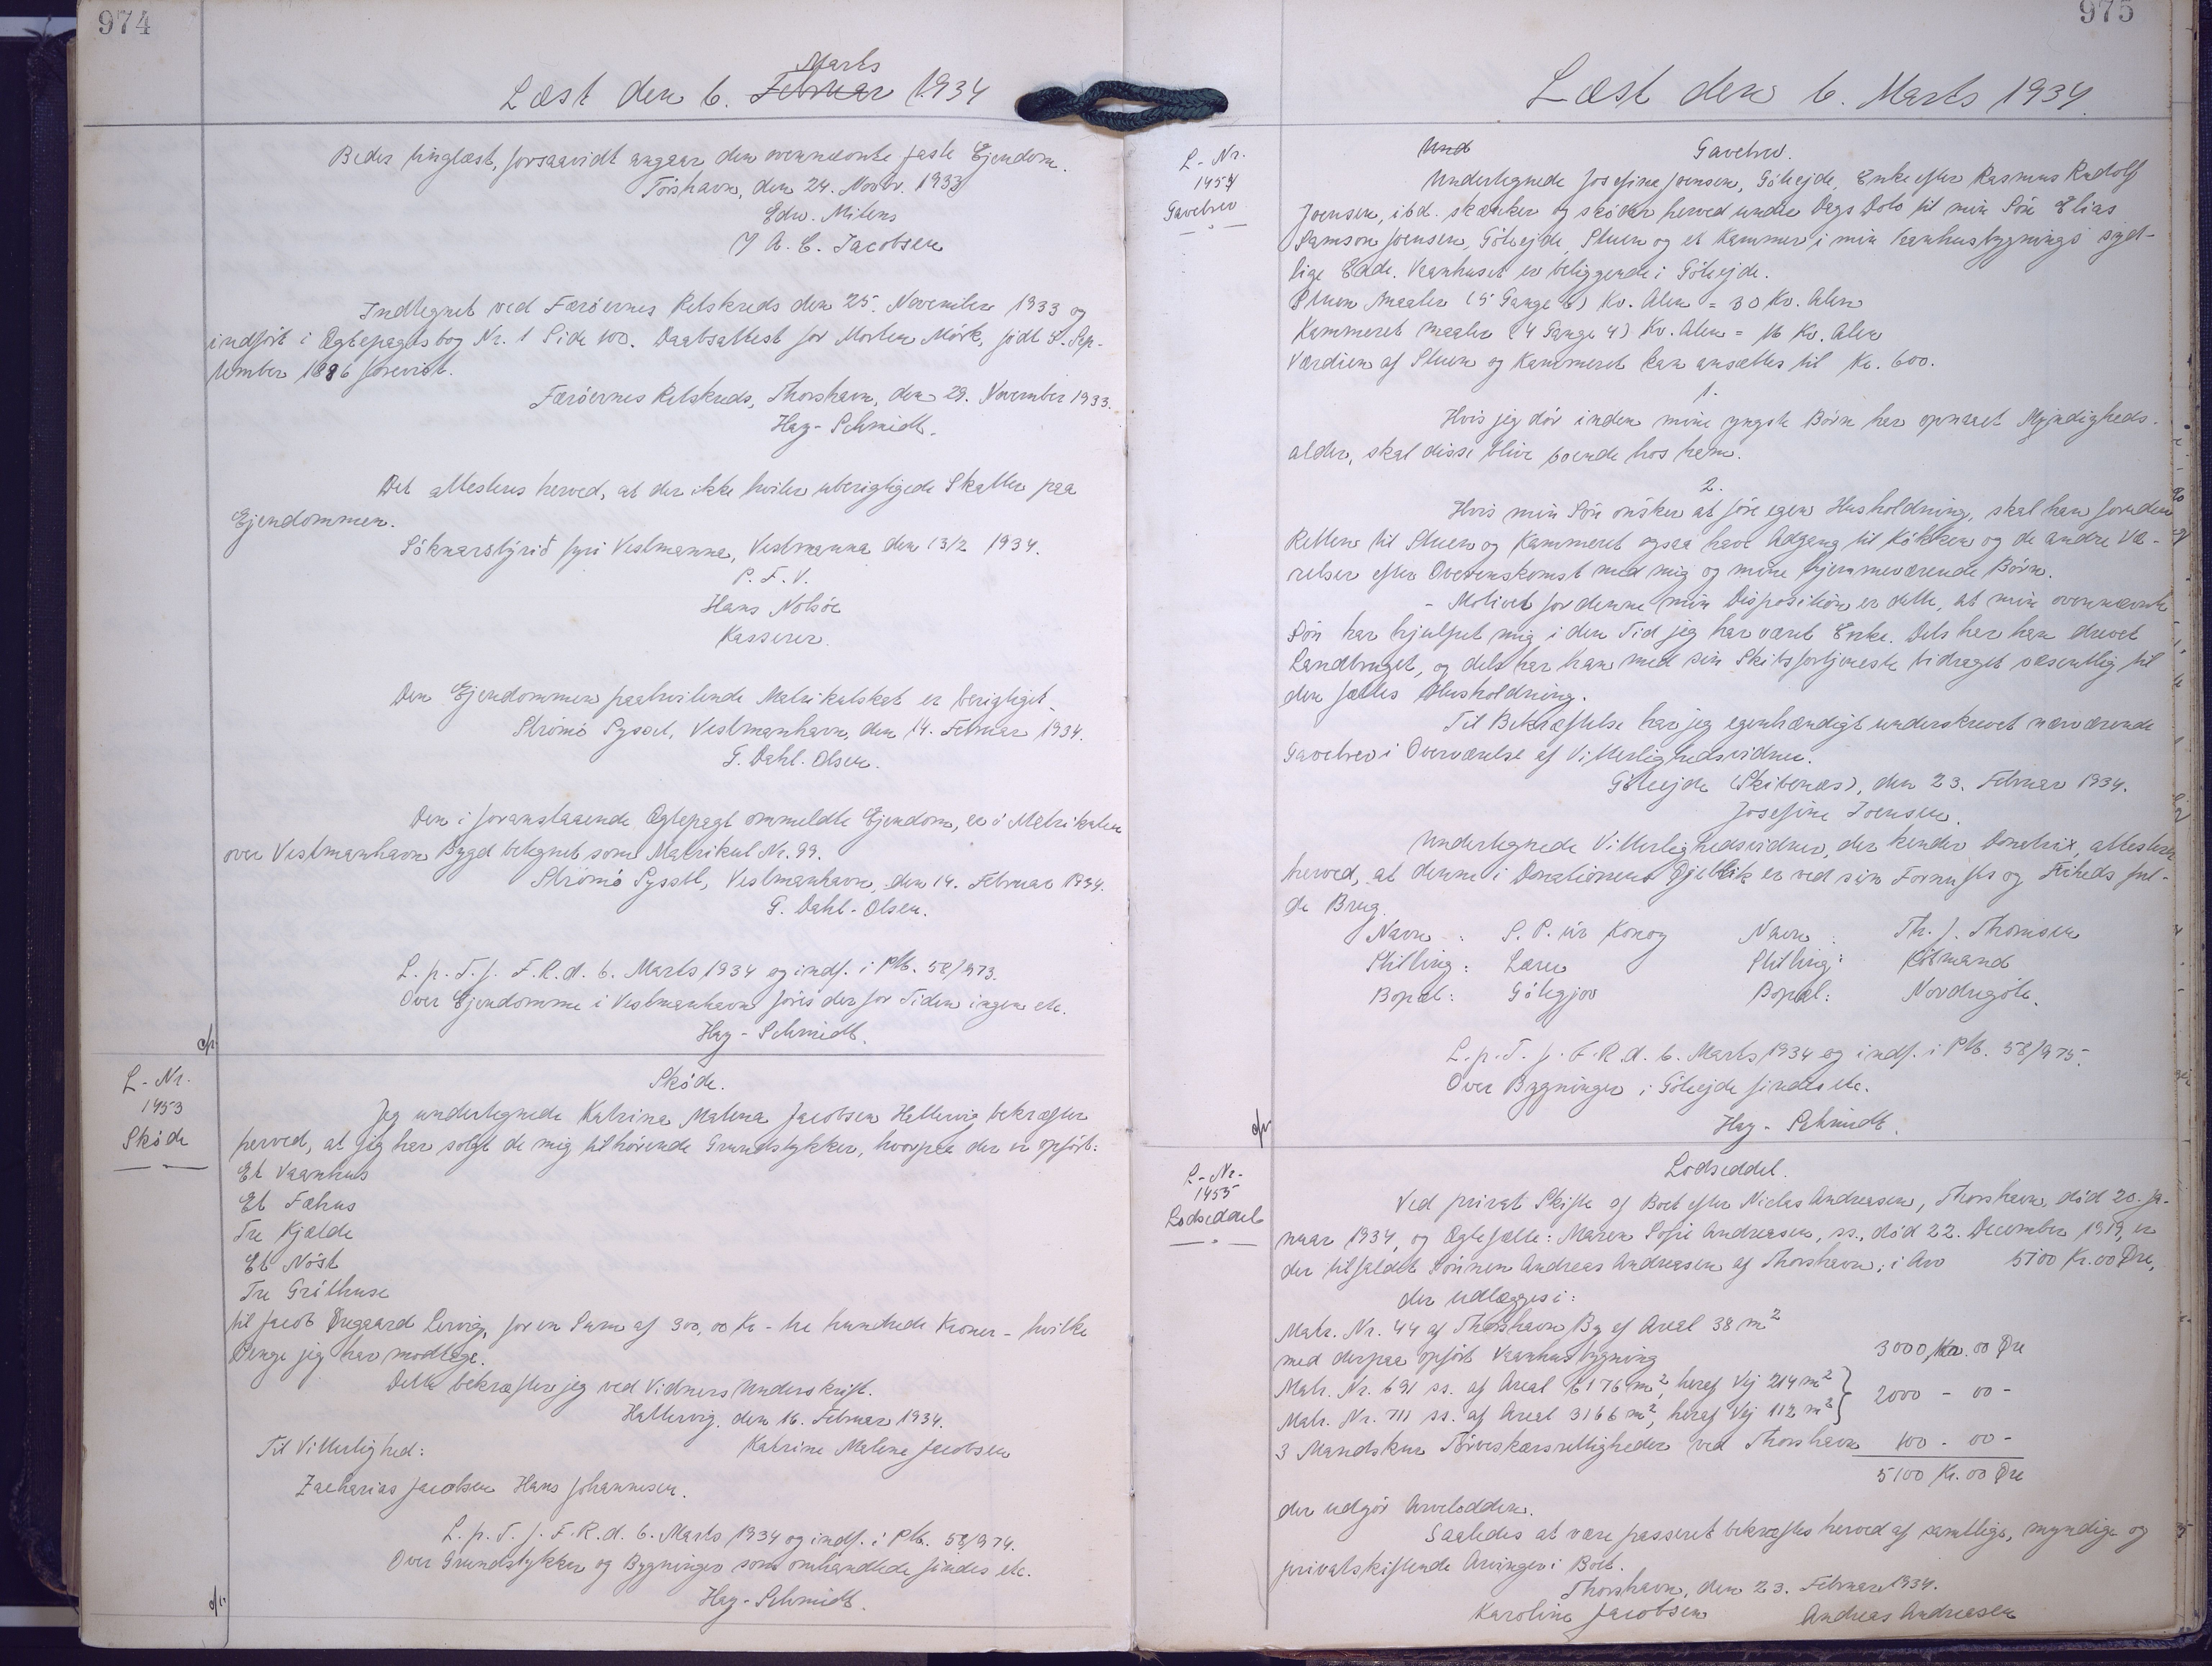 974
Marts
Læst den 6. Februar 1934
Bedes tinglæst, forsaavidt angaar den ovennævnte faste Ejendom.
Tórshavn, den 24. Novbr. 1933
Edw. Mitens
/ A. C. Jacobsen
Indtegnet ved Færøernes Retskreds den 25. November 1933 og
indført i Ægtepagtsbog Nr. 1 Side 100. Daabsattest for Morten Mörk, født 5. Sep-
tember 1886 forevist.
Færøernes Retskreds, Thorshavn, den 29. November 1933.
Hay-Schmidt.
Det attesteres herved, at der ikke hviler uberigtigede Skatter paa
Ejendommen.
Sóknarstýrið fyri Vestmanna, Vestmanna den 13/2 1934.
P. F. V.
Hans Nolsøe
Kasserer.
Den Ejendommen paahvilende Matrikulskat er berigtiget.
Strömö Syssel, Vestmanhavn, den 14. Februar 1934.
G. Dahl-Olsen.
Den i foranstaaende Ægtepagt ommeldte Ejendom, er i Matrikulen
over Vestmanhavn Bygd betegnet som Matrikul Nr. 99.
Strömö Syssel, Vestmanhavn, den 14. Februar 1934.
G. Dahl-Olsen.
L. p. T. f. F. R. d. 6. Marts 1934 og indf. i Ptb. 58/973.
Over Ejendomme i Vestmanhavn føres der for Tiden ingen etc.
Hay-Schmidt.
L-Nr.
1453
Skøde
Skøde.
Jeg undertegnede Katrina Malena Jacobsen Hattervig bekræfter
herved, at jeg har solgt de mig tilhørende Grundstykker, hvorpaa der er opført:
Et Vaanhus
Et Fæhus
Tre Kjælde
Et Nöst
Tre Gróthuse
til Jacob Øregaard Lervig, for en Sum af 300,00 Kr - tre hundrede Kroner - hvilke
Penge jeg har modtage.
Dette bekræfter jeg ved Vidners Underskrift.
Hattervig, den 16. Februar 1934.
Til Vitterlighed: Katrine Malene Jacobsen
Zacharias Jacobsen Hans Johannesen.
L. p. T. f. F. R. d. 6. Marts 1934 og indf. i Ptb. 58/974.
Over Grundstykker og Bygninger som omhandlede findes etc.
Hay-Schmidt.
975
Læst den 6. Marts 1934
L-Nr.
1454
Gavebrev
Und Gavebrev.
Undertegnede Josefina Joensen, Götuejde, Enke efter Rasmus Rudolf
Joensen, ibd. skænker og skøder herved under Dags Dato til min Søn Elias
Samson Joensen, Götuejde, Stuen og et Kammer i min Vaanhusbygnings syd-
lige Ende. Vaanhuset er beliggende i Götuejde.
Stuen maaler (5 Gange 6) Kv. Alen = 30 Kv. Alen
Kammeret maaler (4 Gange 4) Kv. Alen = 16 Kv. Alen
Værdien af Stuen og Kammeret kan ansættes til Kr. 600.
1.
Hvis jeg dør inden mine yngste Børn har opnaaet Myndigheds-
alder, skal disse blive boende hos ham.
2.
Hvis min Søn ønsker at føre egen Husholdning, skal han foruden
Retten til Stuen og Kammeret ogsaa have Adgang til Køkken og de andre Væ-
relser efter Overenskomst med mig og mine hjemmeværende Børn.
- Motivet for denne min Disposition er dette, at min ovennævnte
Søn har hjulpet mig i den Tid jeg har været Enke. Dels har han drevet
Landbruget, og dels har han med sin Skibsfortjeneste bidraget væsentlig til
den fælles Husholdning.
Til Bekræftelse har jeg egenhændigt underskrevet nærværende
Gavebrev i Overværelse af Vitterlighedsvidner.
Götuejde (Skibenæs), den 23. Februar 1934.
Josefine Joensen.
Undertegnede Vitterlighedsvidner, der kender Donatrix, attesterer
herved, at denne i Donationens Øjeblik er ved sin Fornufts og Friheds ful-
de Brug.
Navn: S. P. úr Konoy Navn: Th. J. Thomsen
Stilling: Lærer Stilling: Købmand
Bopæl: Götugjov Bopæl: Nordragöte.
L. p. T. f. F. R. d. 6. Marts 1934 og indf. i Ptb. 58/975.
Over Bygninger i Götuejde findes etc.
Hay-Schmidt.
L-Nr.
1455
Lodseddel
Lodseddel.
Ved privat Skifte af Boet efter Niclas Andreasen, Thorshavn, død 20. Ja-
nuar 1934, og Ægtefælle: Maren Sofie Andreasen, ss., død 22. December 1919, er
der tilfaldet Sønnen Andreas Andreasen af Thorshavn, i Arv 5100 Kr. 00 Øre,
der udlægges i:
Matr. Nr. 44 af Thorshavn By af Areal 38 m²
med derpaa opført Vaanhusbygning 3000 Kr. 00 Øre
Matr. Nr. 691 ss. af Areal 6176 m², heraf Vej 214 m²
Matr. Nr. 711 ss. af Areal 3166 m², heraf Vej 112 m² } 2000 - 00 -
3 Mandskur Tørveskærsrettigheder ved Thorshavn 100 - 00 -
5100 Kr. 00 Øre
der udgør Arvelodden.
Saaledes at være passeret bekræftes herved af samtlige, myndige og
privatskiftende Arvinger i Boet.
Thorshavn, den 23. Februar 1934.
Karoline Jacobsen Andreas Andreasen